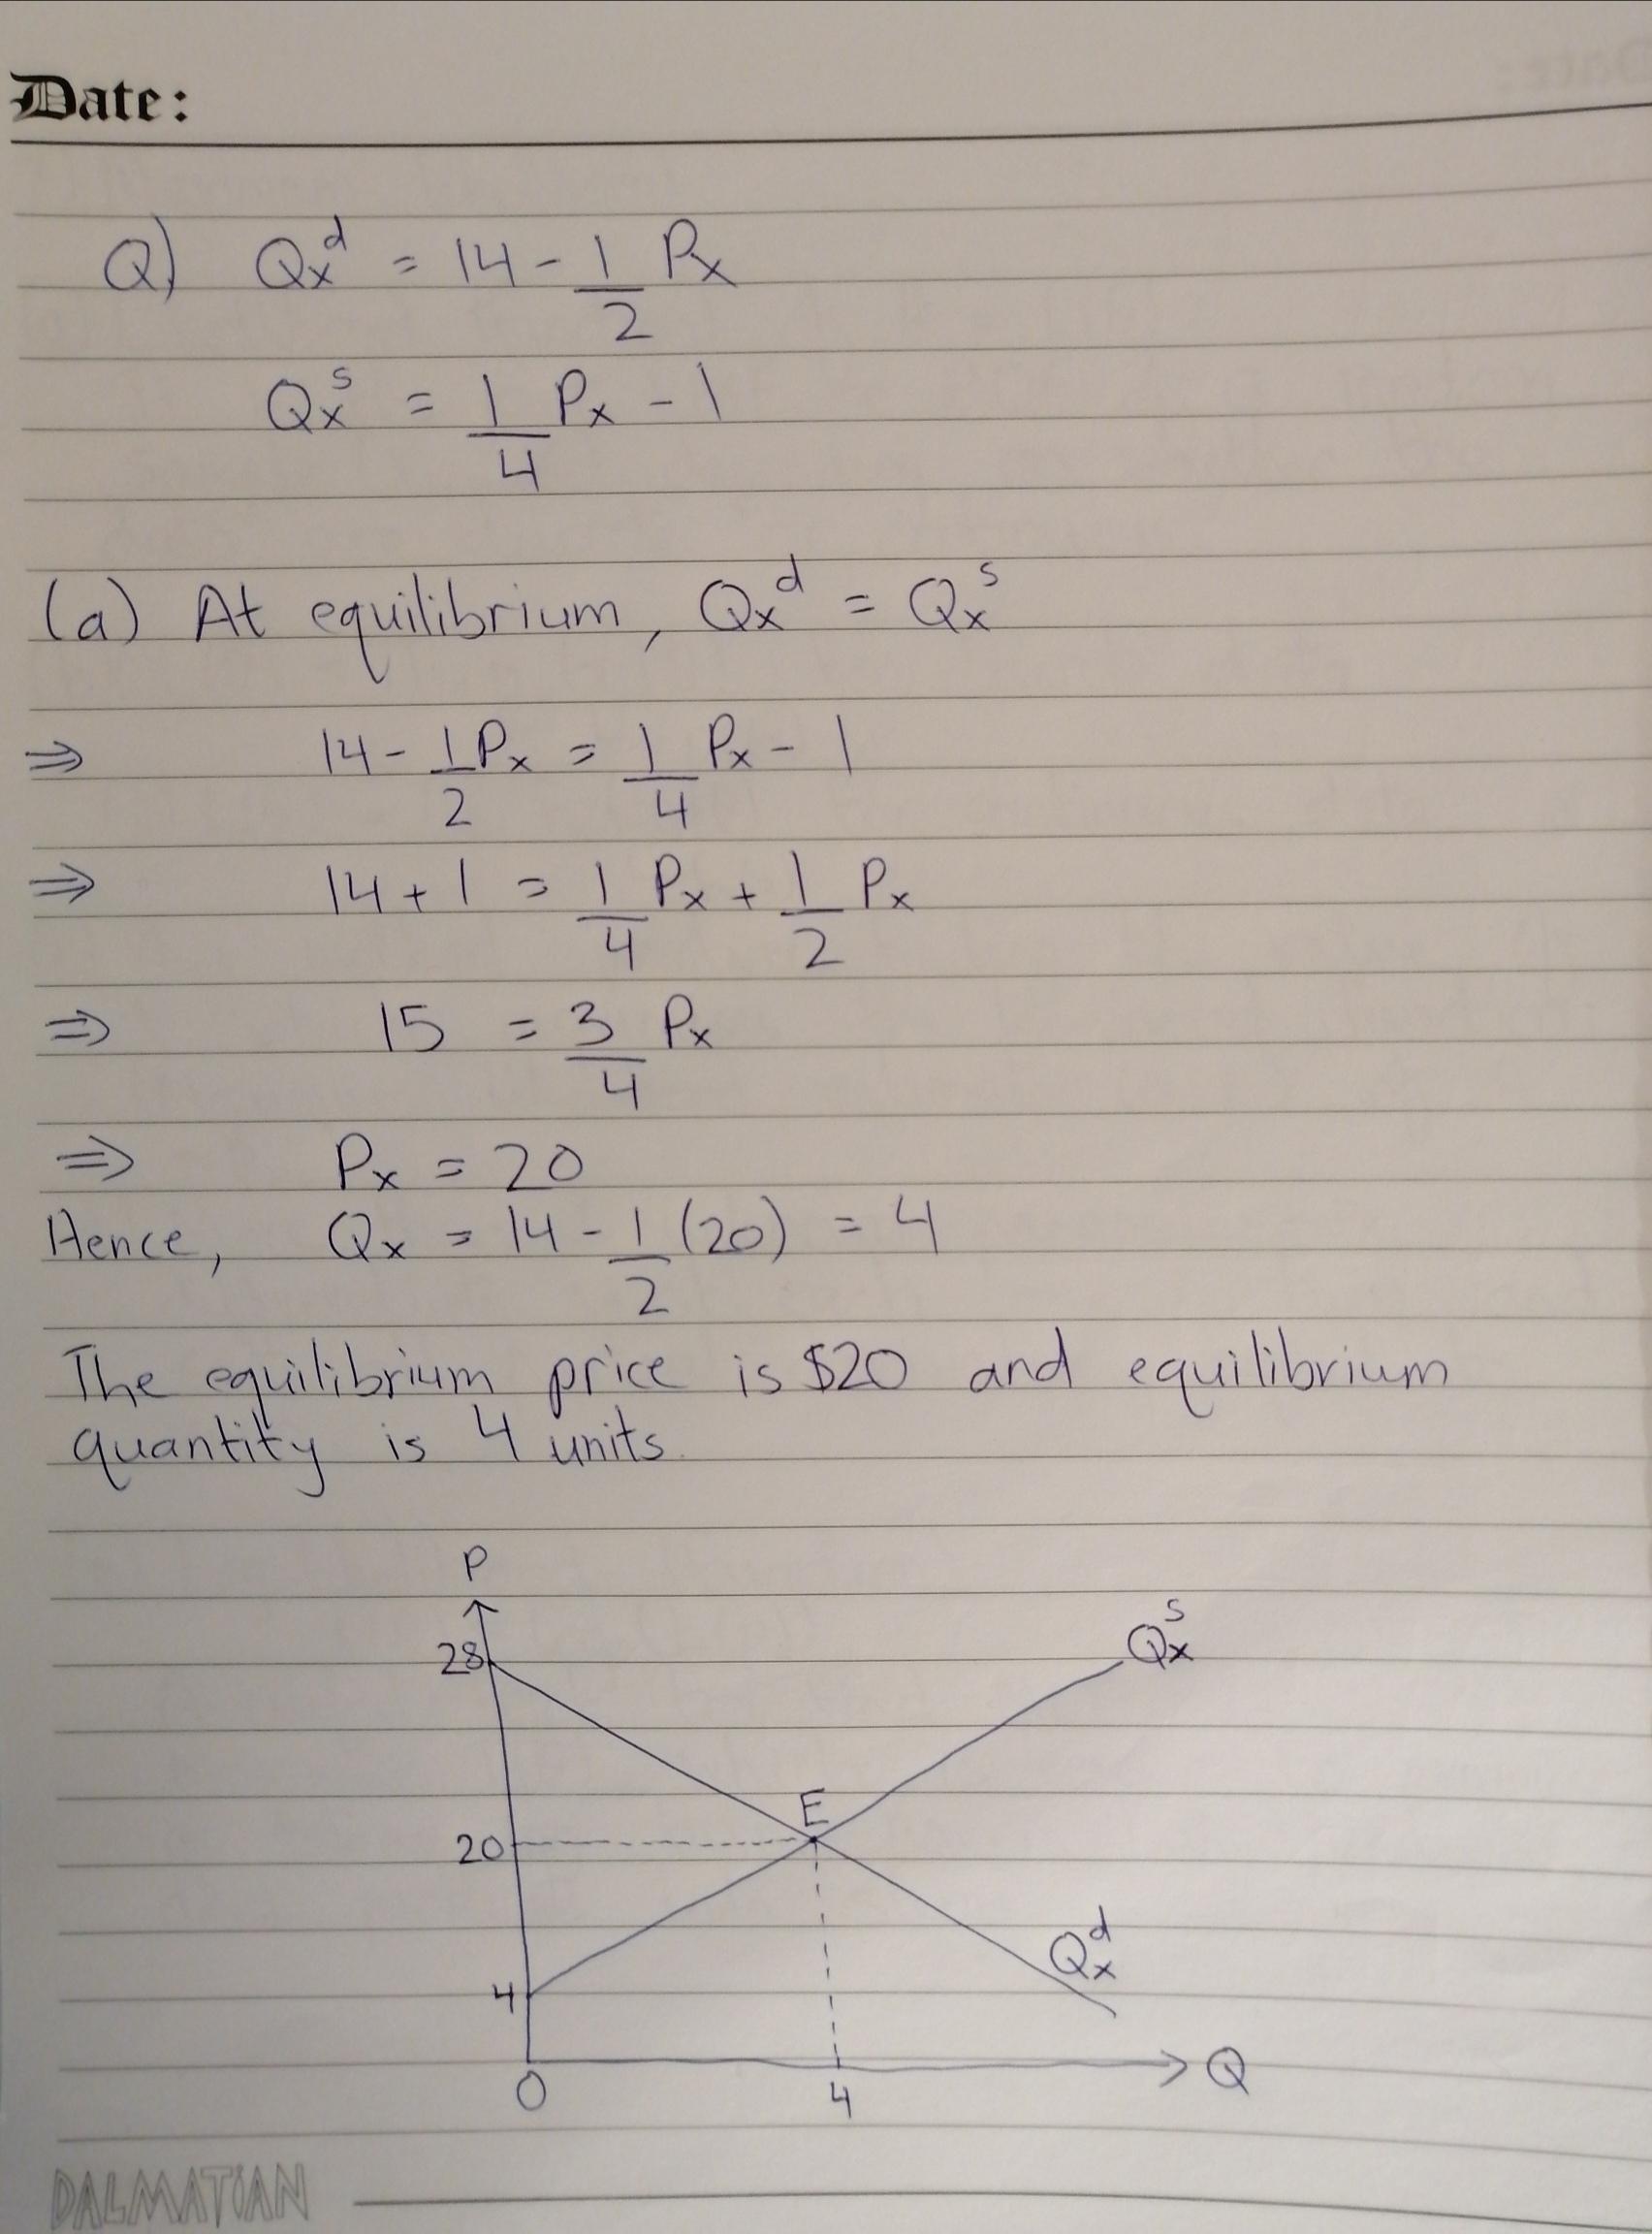 Date:
Q) Qx^d = 14 - 1/2 Px
Qx^s = 1/4 Px - 1
(a) At equilibrium, Qx^d = Qx^s
⇒ 14 - 1/2 Px = 1/4 Px - 1
⇒ 14 + 1 = 1/4 Px + 1/2 Px
⇒ 15 = 3/4 Px
⇒ Px = 20
Hence, Qx = 14 - 1/2 (20) = 4
The equilibrium price is $20 and equilibrium
quantity is 4 units.
P
28
Qx^s
E
20
Qx^d
4
O
4
Q
DALMATIAN